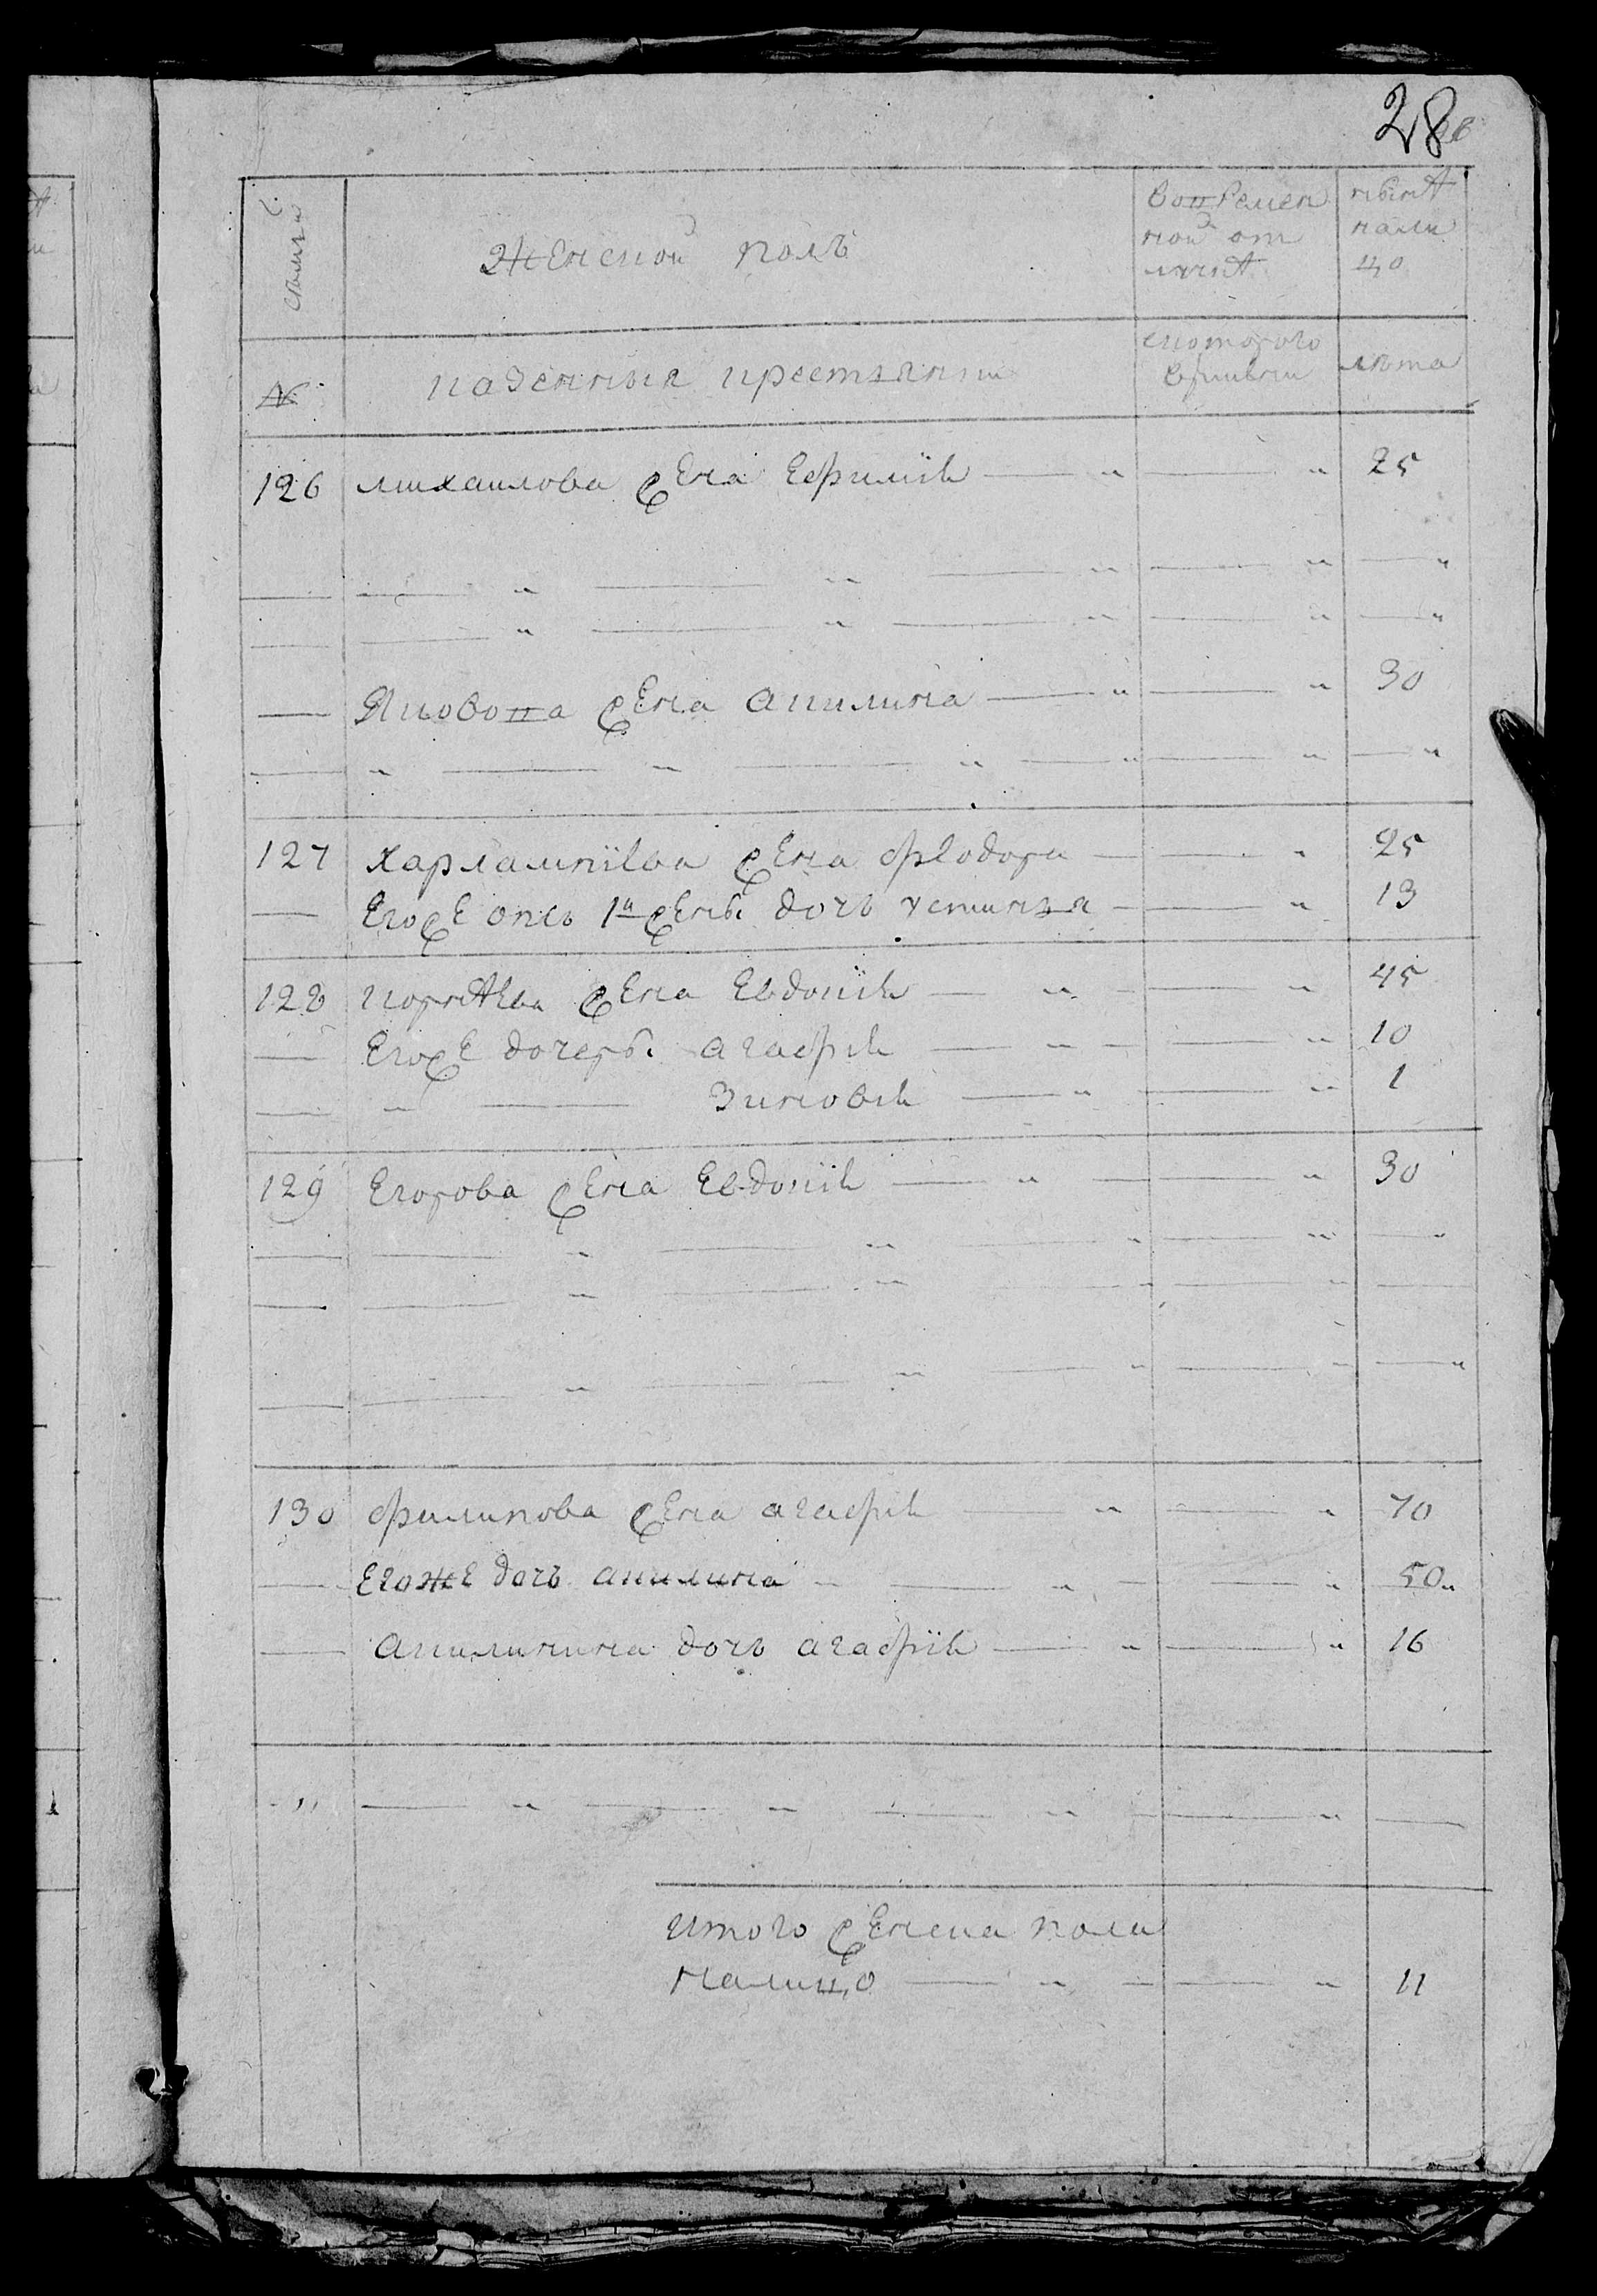 28
семьи
Женской полъ
Во временной отлучкѣ
нынѣ налицо
№
казенныя крестьянки
с котораго времѣни
лѣта
126 михаилова жена Ефимiя — " — " 25
— " — " — " — " — "
— " — " — " — " — "
— Яковова жена Акилина — " — " 30
— " — " — " — " — " — "
127 Харлампiева жена Феодора — — " 25
— Егоже отъ 1й жены дочь устинья — — " 13
128 корнѣева жена Евдокiя — " — " 45
— Егоже дочеры агафия — " — " 10
— " — Зиновия — " — " 1
129 Егорова жена Евдокiя — " — " 30
— — " — " — " — " — "
— — " — " — " — " —
— — " — " — " — " — "
130 филипова жена агафия — " — " 70
— Егоже дочь акилина — — " — " 50 "
— Акилинина дочь агафiя — " — " 16
" — " — " — " — " —
итого женска пола
налицо — " — " 11